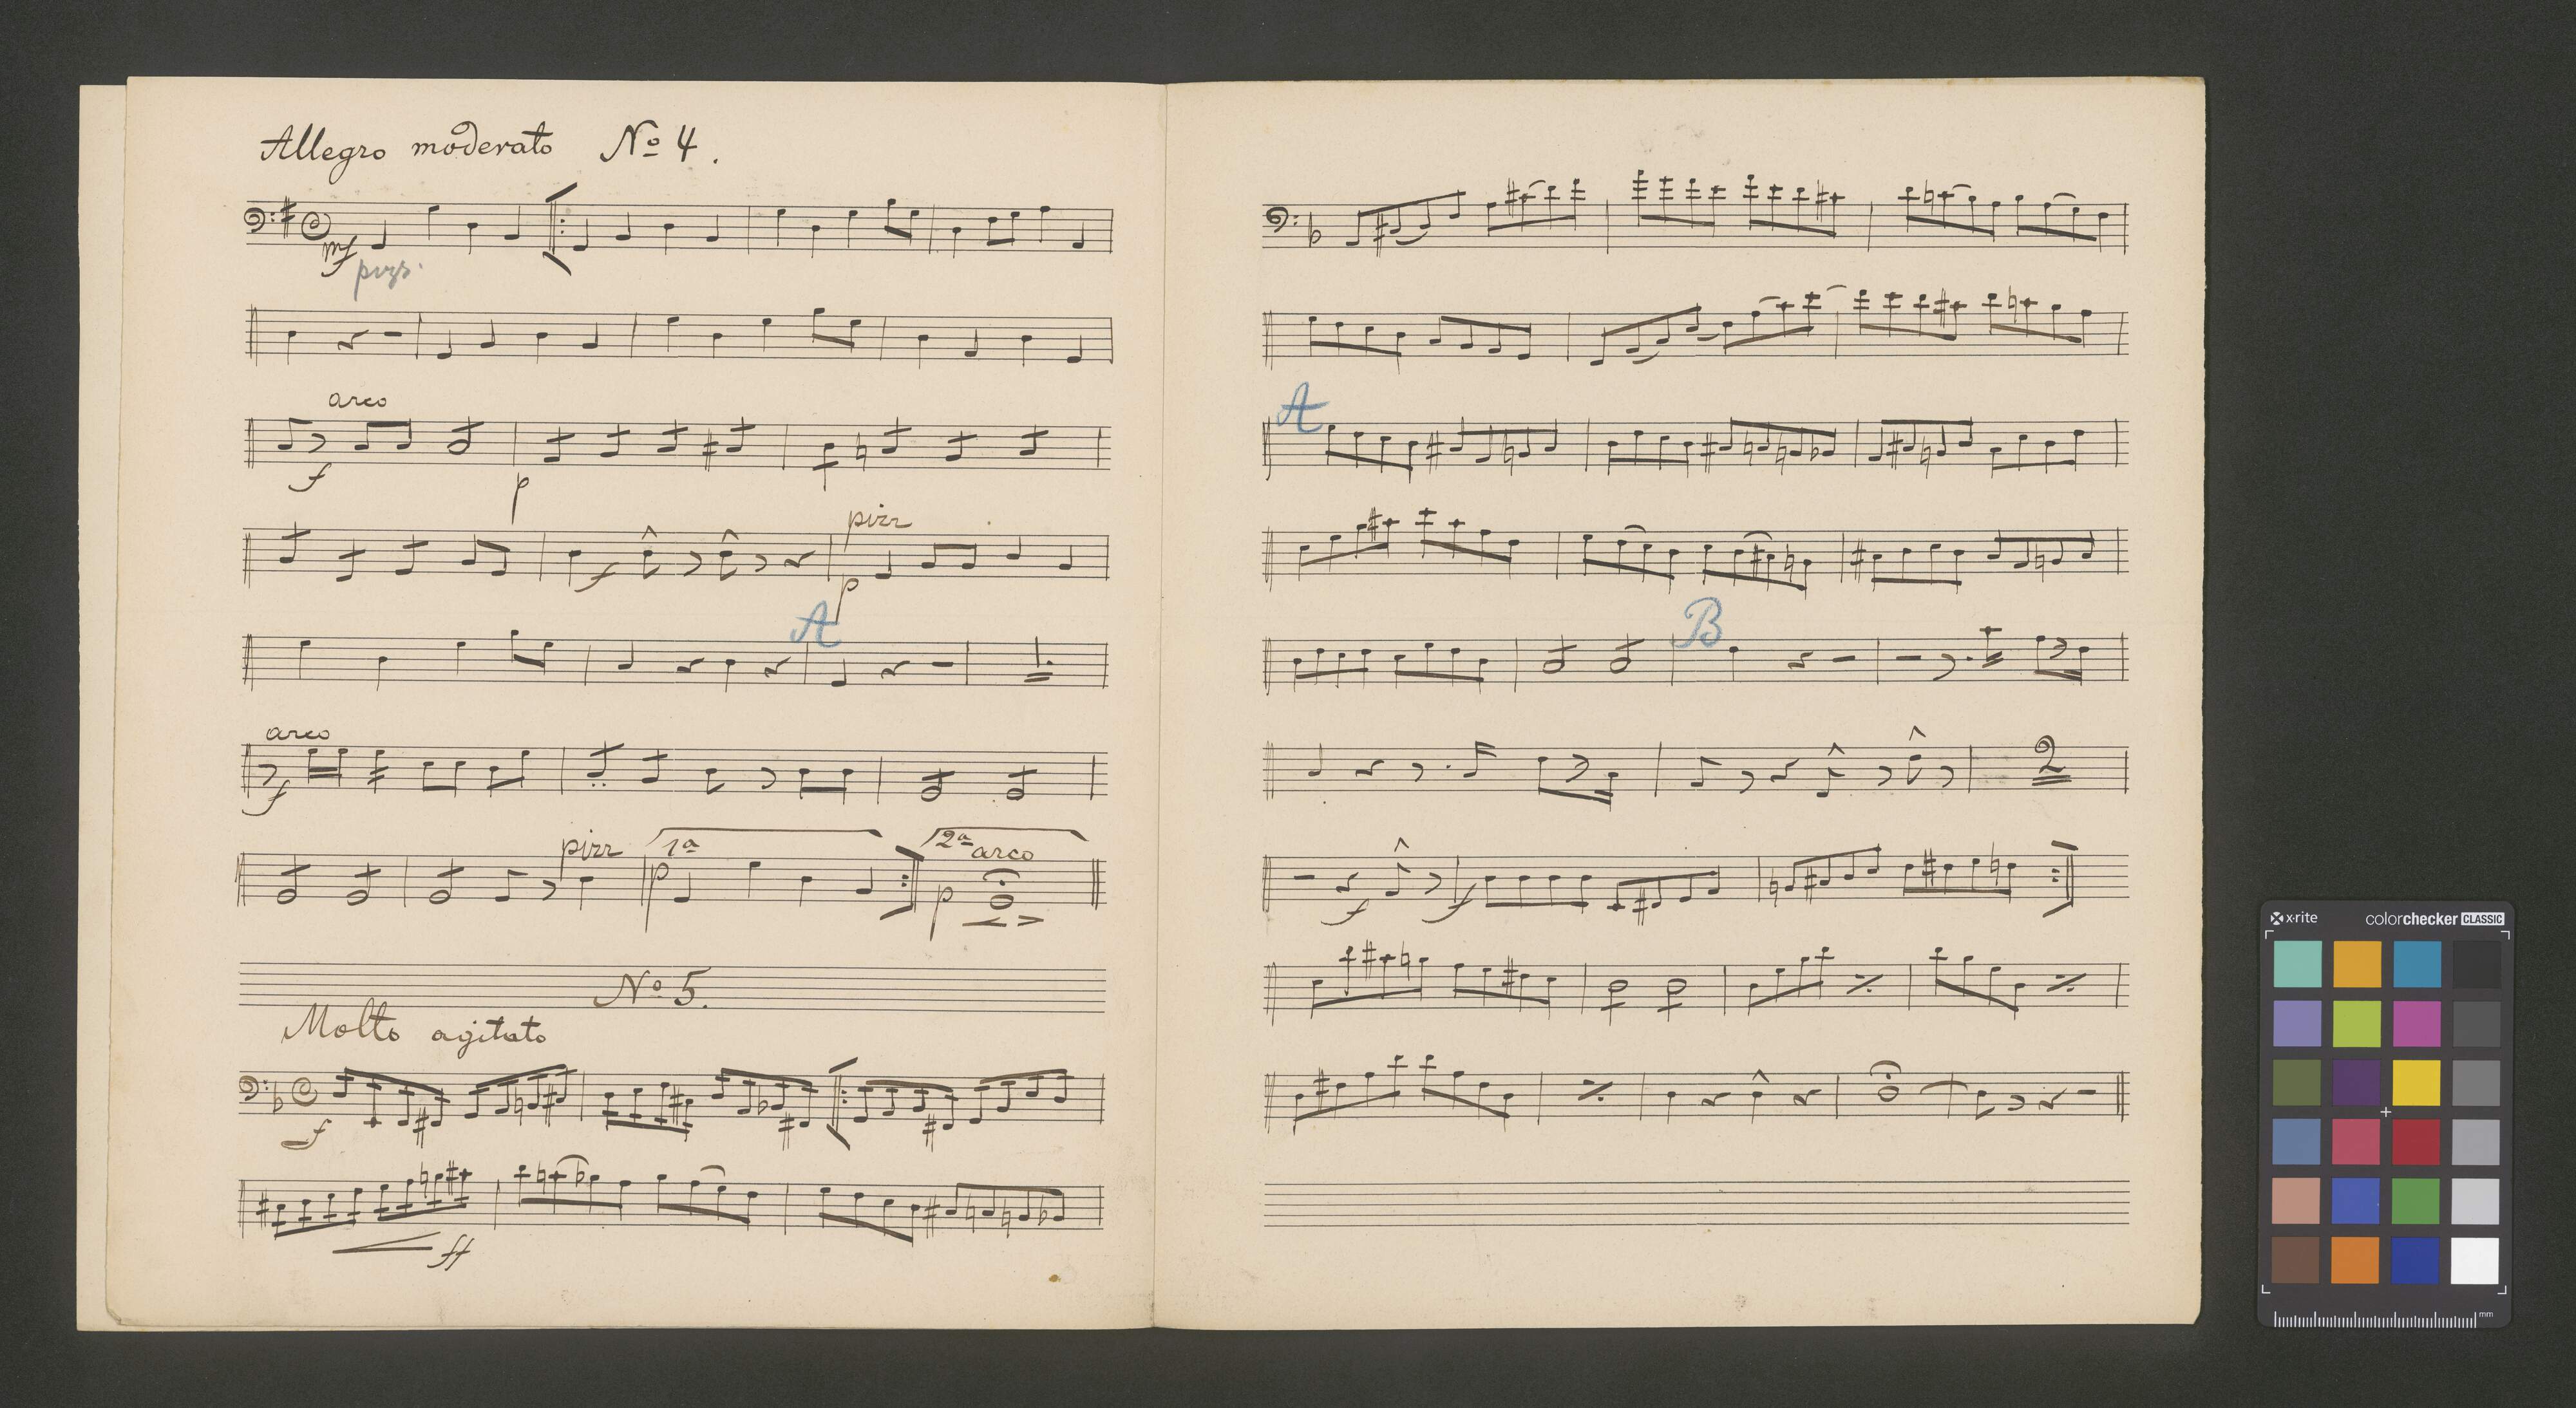 Allegro moderato No 4.
mf
pizz.
arco
f
p
pizz
f
p
A
arco
f
pizz
1a
2a arco
p
p
No 5.
Molto agitato
f
ff
A
B
2
f
f
x-rite colorchecker CLASSIC
mm